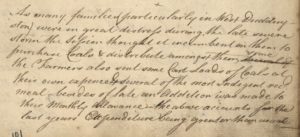 As many families particularly in West
were in great distress during the late severe
storm the Session thought it incumbent on them to
purchase Coals & distribute amongst them
the Farmers also sent some Cart Loads of Coals at
their own expence, & several of the most Indigent got
meal - besides of late an addition was made to
their Monthly Allowance - the above accounts for the
last years Expenditure being greater than usual